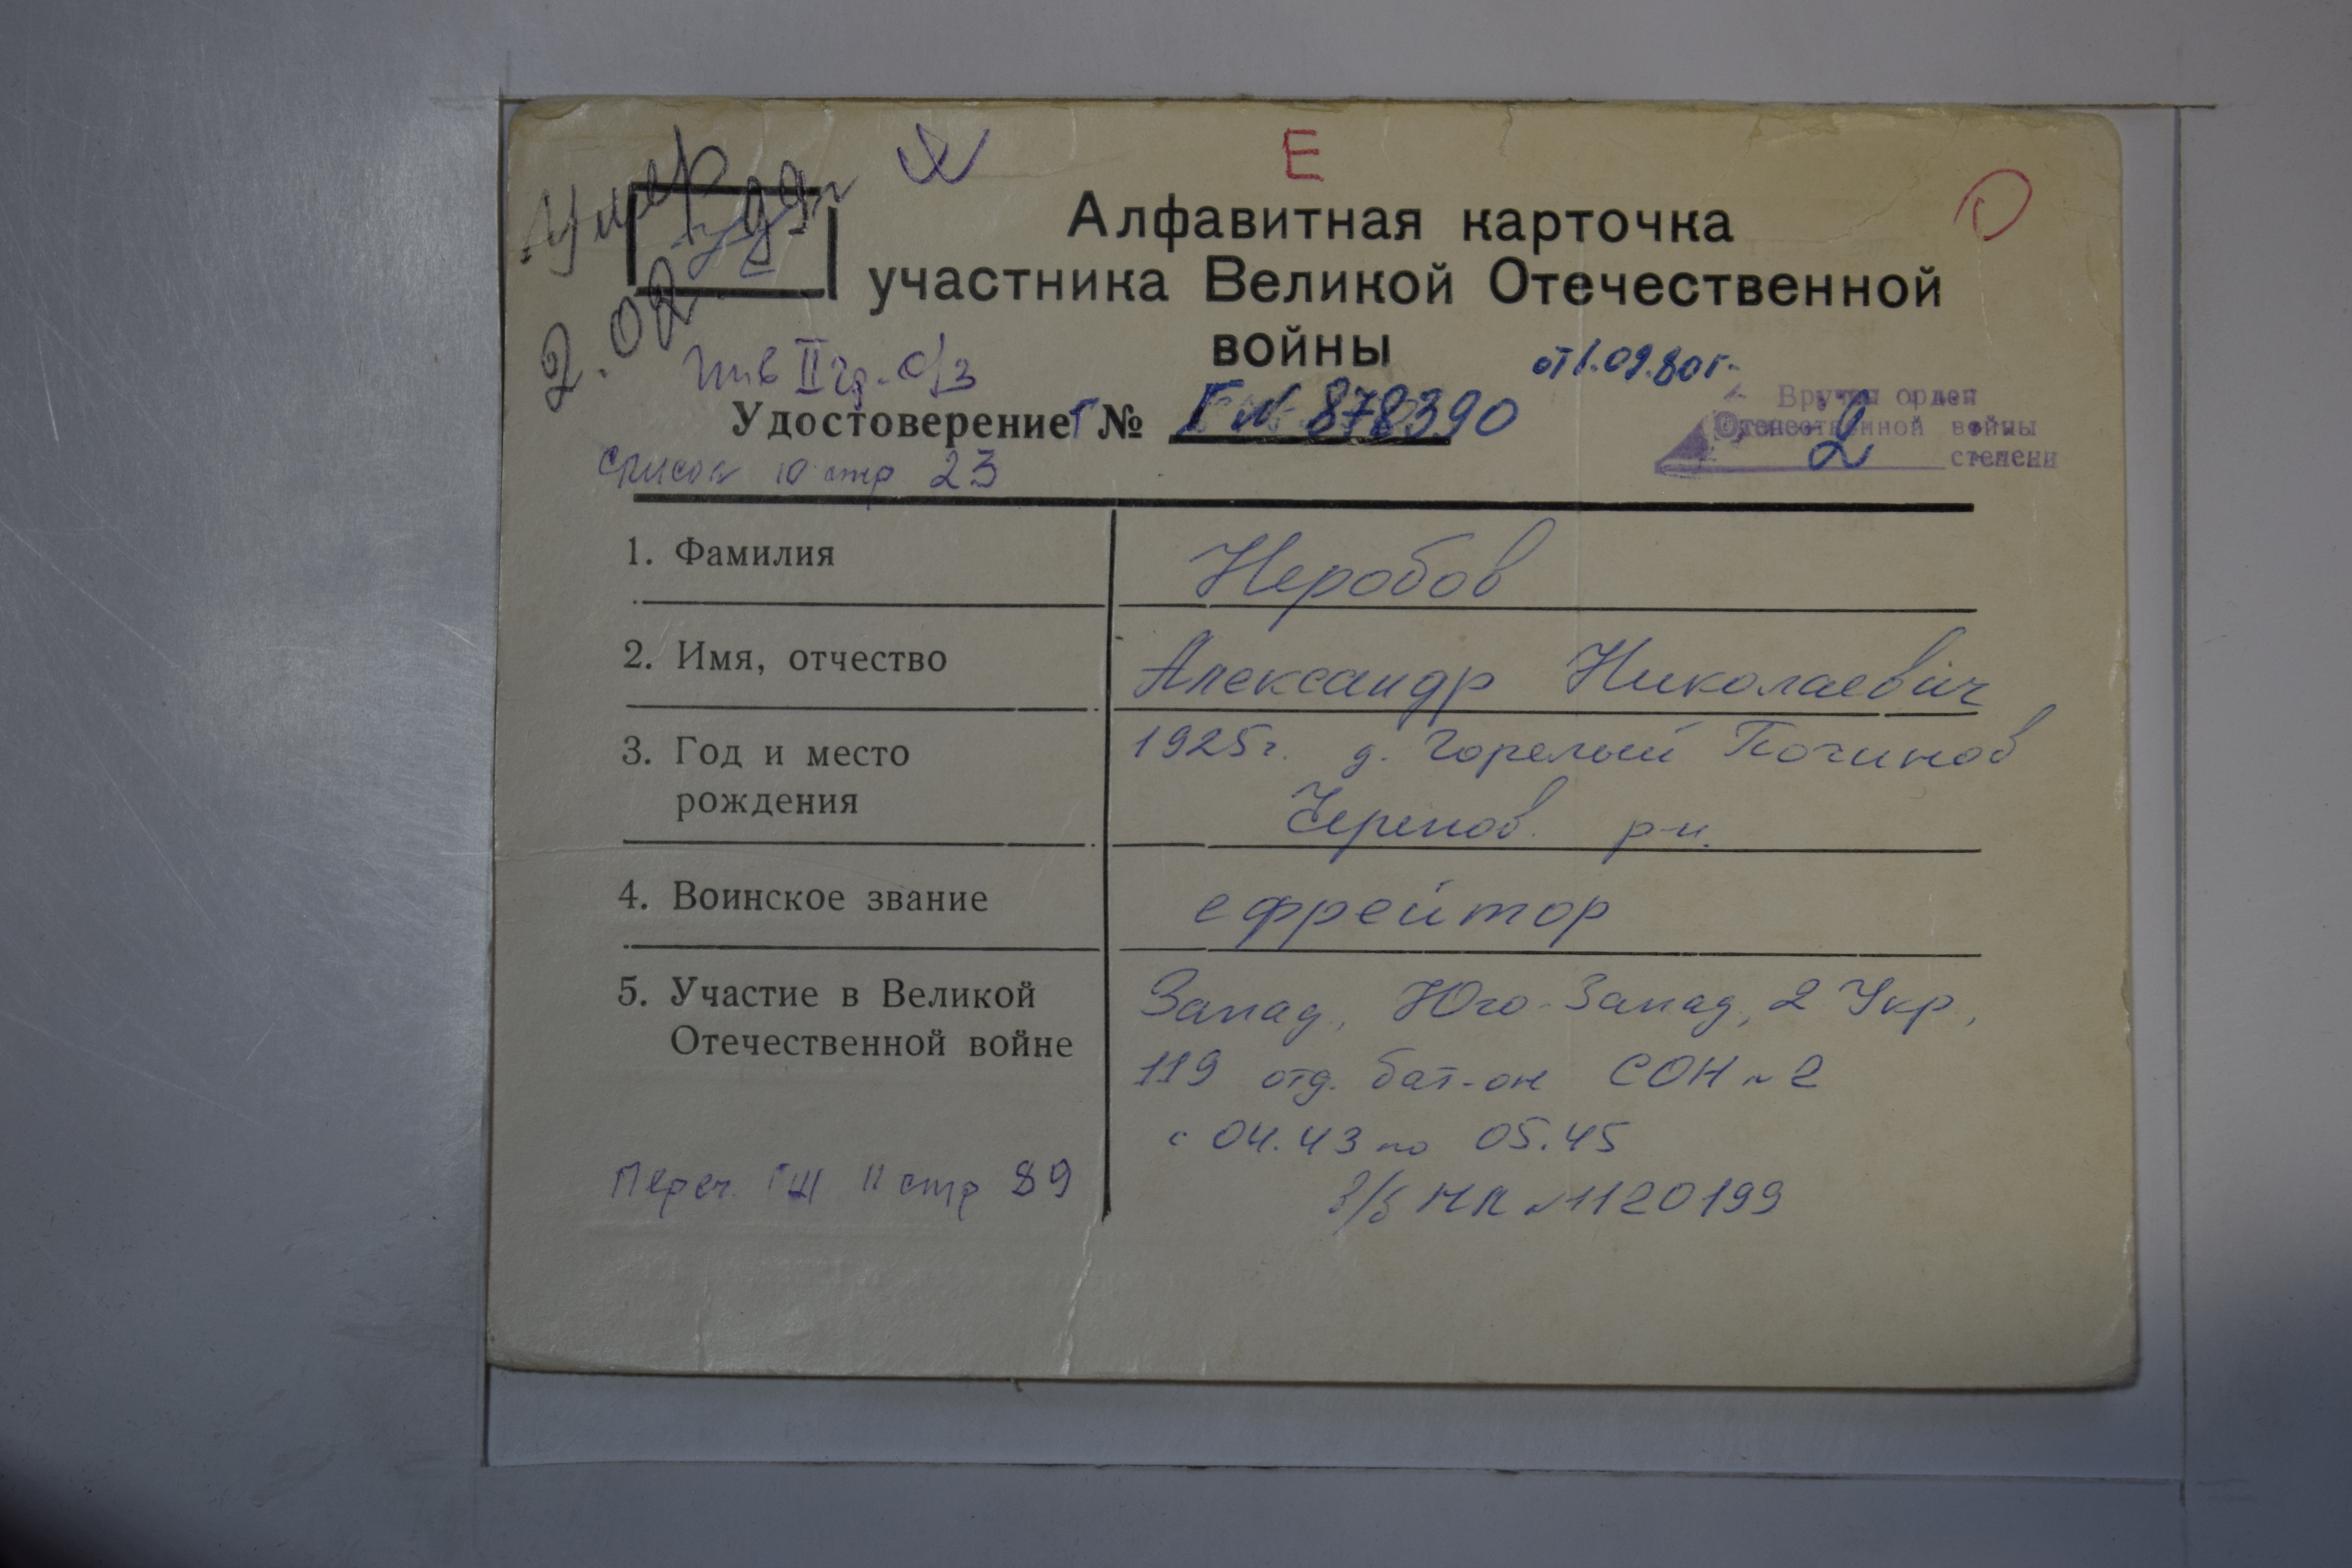 Умер
2.02.99г
Е
Алфавитная карточка
участника Великой Отечественной
войны
инв II гр. о/з
от 1.09.80г.
Удостоверение Г № Г № 878390
Вручен орден
Отечественной войны
2 степени
список 10 стр 23
1. Фамилия
Неробов
2. Имя, отчество
Александр Николаевич
3. Год и место
рождения
1925г. д. Горелый Починов
Черепов. р-н.
4. Воинское звание
ефрейтор
5. Участие в Великой
Отечественной войне
Запад., Юго-Запад, 2 Укр,
119 отд. бат-он СОН №2
с 04.43 по 05.45
Переч. ГШ II стр 89
в/б НК №1120199